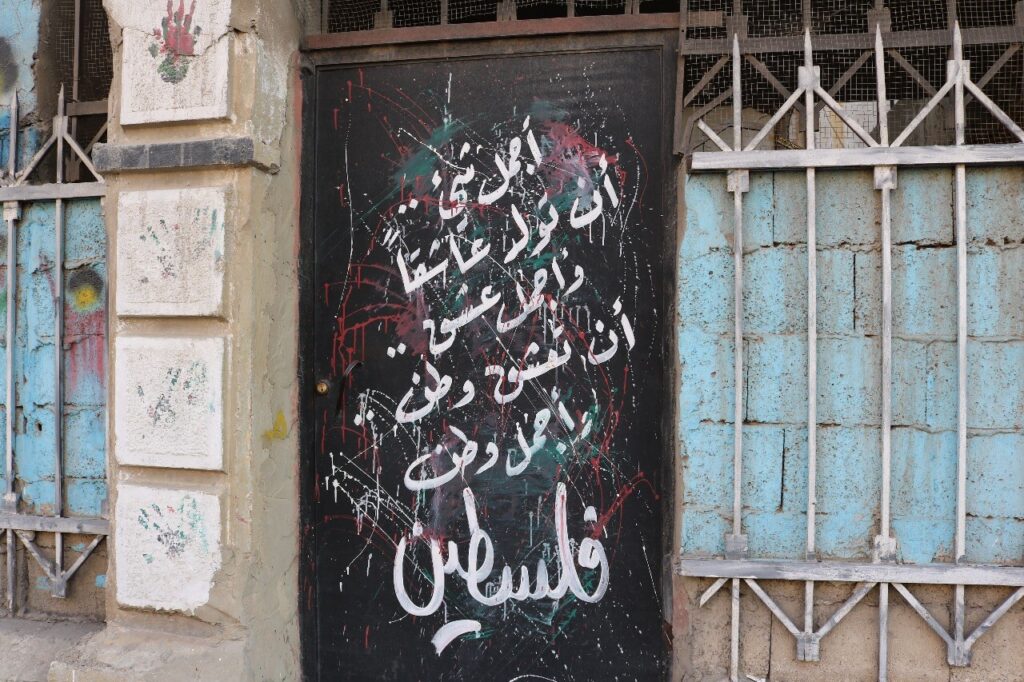 أجمل شيء ..
أن تولد عاشقاً
وأجمل عشق ..
أن تعشق وطن ..
وأجمل وطن
فلسطين